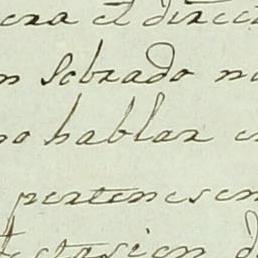 era el direc
n sobrado no
no hablar e
pertenesen